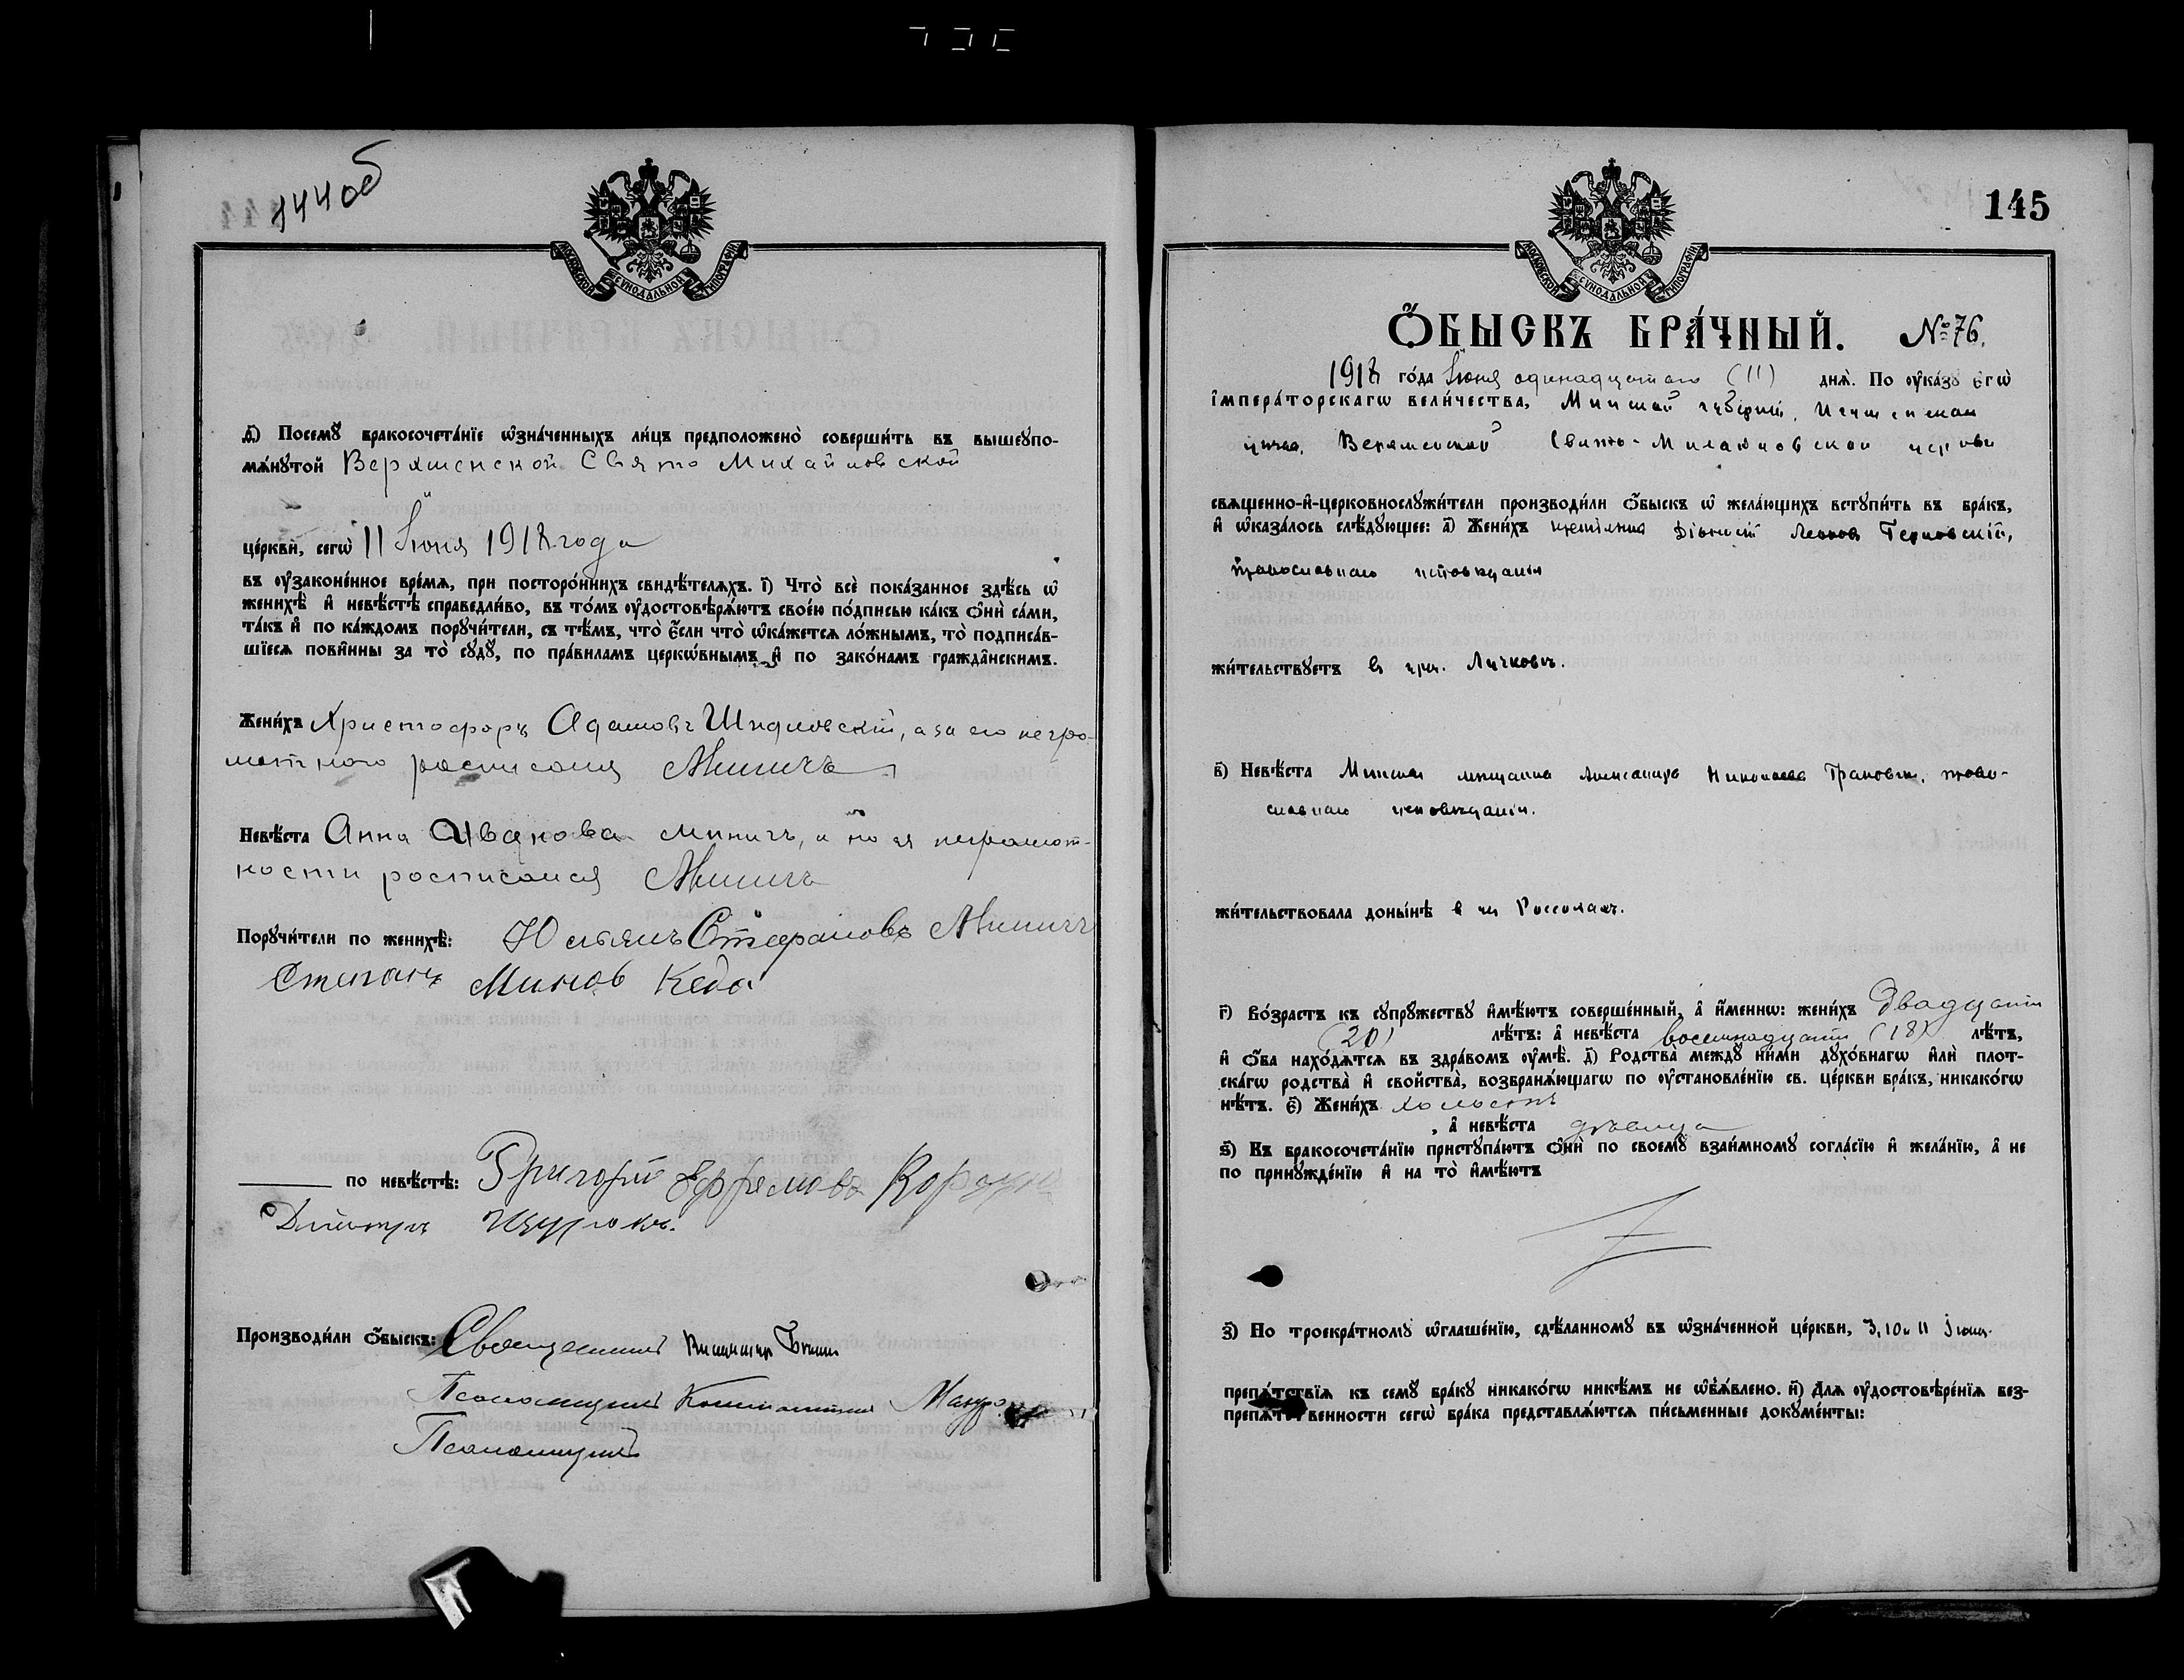 144об
МОСКОВСКОЙ СѴНОДАЛЬНОЙ ТИПОГРАФІИ
Посемꙋ бракосочета́нїе ѡ҆зна́ченныхъ ли́цъ предположено̀ соверши́ть въ вышеꙋпо-
мѧ́нꙋтой Верхменской Свято Михайловской
це́ркви, сегѡ̀ 11 Іюня 1918 года
въ ᲂу҆зако́ненное вре́мѧ, при посторо́ннихъ свидѣ́телѧхъ. і҃) Что̀ всѐ пока́занное здѣ́сь ѡ҆
женихѣ̀ и҆ невѣ́стѣ справедли́во, въ то́мъ ᲂу҆достовѣрѧ́ютъ свое́ю по́дписью ка́къ ѻ҆нѝ са́ми,
та́къ и҆ по ка́ждомъ порꙋчи́тели, съ тѣ́мъ, что̀ є҆́сли что̀ ѡ҆ка́жетсѧ ло́жнымъ, то̀ подписа́в-
шїесѧ пови́нны за то̀ сꙋдꙋ̀, по пра́виламъ церкѡ́внымъ и҆ по зако́намъ гражда́нскимъ.
Жени́хъ Христофоръ Адамовъ Шидловскій, а за его негра-
мотнаго росписался Миничъ
Невѣ́ста Анна Иванова Миничъ, а по ея неграмот-
ности росписался Миничъ
Порꙋчи́тели по женихѣ̀: Юльянъ Стефановъ Миничъ
Степанъ Минов Кеда
по невѣ́стѣ: Григорій Ефремовъ
Производи́ли ѻ҆́быскъ: Священникъ
Псаломщикъ Константинъ
Псаломщикъ
145
МОСКОВСКОЙ СѴНОДАЛЬНОЙ ТИПОГРАФІИ
Ѻ҆́БЫСКЪ БРА́ЧНЫЙ. № 76.
1918 го́да Іюня одинадцатаго (11) днѧ̀. По ᲂу҆ка́зꙋ є҆гѡ̀
і҆мпера́торскагѡ вели́чества, Минской губерніи, Игуменскаго
уѣзда, Верхменской Свято-Михайловской церкви
свѧщенно-и҆-церковнослꙋжи́тели производи́ли ѻ҆́быскъ ѡ҆ жела́ющихъ встꙋпи́ть въ бра́къ,
и҆ ѡ҆каза́лось слѣ́дꙋющее: а҃) Жени́хъ крестьянинъ Діонисій Леоновъ
православнаго исповѣданія
жи́тельствꙋетъ въ
в҃) Невѣ́ста Минская мѣщанка Александра Николаева право-
славнаго исповѣданія.
жи́тельствовала доны́нѣ в
г҃) Во́зрастъ къ сꙋпрꙋ́жествꙋ и҆мѣ́ютъ соверше́нный, а҆ и҆́меннѡ: жени́хъ Двадцати
(20) лѣ́тъ: а҆ невѣ́ста восемнадцати (18) лѣ́тъ,
и҆ ѻ҆́ба нахо́дѧтсѧ въ здра́вомъ ᲂу҆мѣ̀. д҃) Родства̀ междꙋ̀ ни́ми дꙋхо́внагѡ и҆лѝ плот-
ска́гѡ родства̀ и҆ свойства̀, возбранѧ́ющагѡ по ᲂу҆становле́нїю св. це́ркви бра́къ, никако́гѡ
нѣ́тъ. є҃) Жени́хъ холостъ
, а҆ невѣ́ста дѣвица
ѕ҃) Къ бракосочета́нїю пристꙋпа́ютъ ѻ҆нѝ по своемꙋ̀ взаи́мномꙋ согла́сїю и҆ жела́нїю, а҆ не
по принꙋжде́нїю и҆ на то̀ и҆мѣ́ютъ
з҃) По троекра́тномꙋ ѡ҆глаше́нїю, сдѣ́ланномꙋ въ ѡ҆зна́ченной це́ркви, 3, 10 и 11 Іюня
препѧ́тствїѧ къ семꙋ̀ бра́кꙋ никако́гѡ никѣ́мъ не ѡ҆б̾ѧ́влено. и҃) Длѧ̀ ᲂу҆достовѣре́нїѧ без-
препѧ́тственности сегѡ̀ бра́ка представлѧ́ютсѧ пи́сьменные докꙋме́нты: